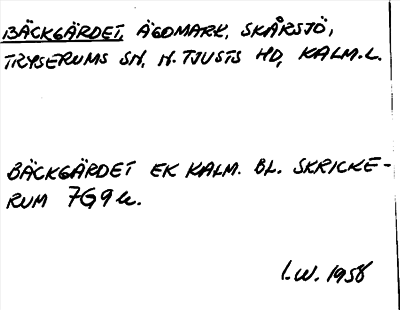 BÄCKGÄRDET, ÄGOMARK, SKÅRSJÖ,
TRYSERUMS SN, N. TJUSTS HD, KALM.L.
BÄCKGÄRDET EK KALM. BL. SKRICKE-
RUM 7G9h.
I.W. 1958